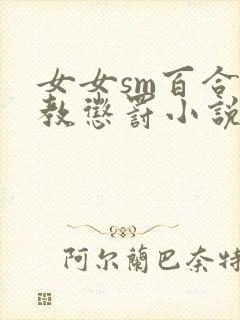 女女sm百合
教懲罰小說
阿尔蘭巴奈特